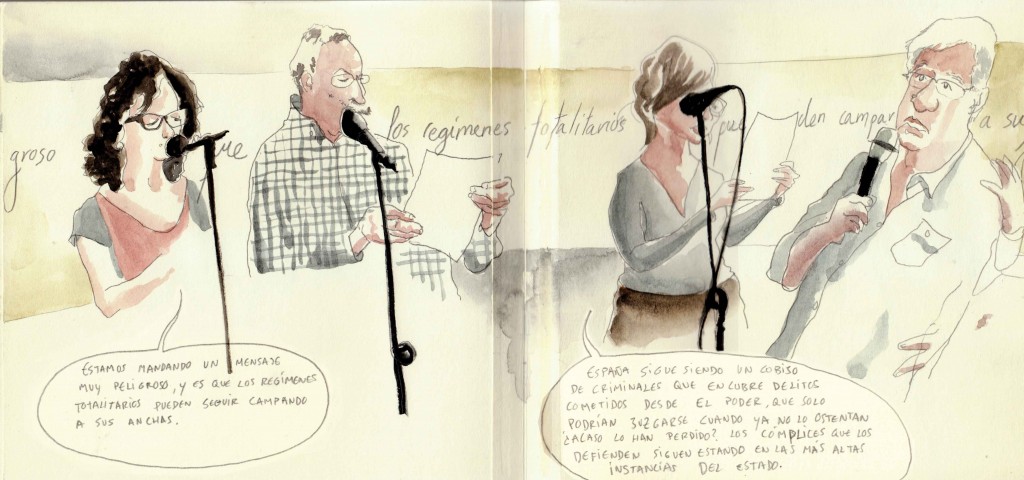 groso ue los regímenes totalitarios pue den campar a su
ESTAMOS MANDANDO UN MENSAJE
MUY PELIGROSO, Y ES QUE LOS REGÍMENES
TOTALITARIOS PUEDEN SEGUIR CAMPANDO
A SUS ANCHAS.
ESPAÑA SIGUE SIENDO UN COBIJO
DE CRIMINALES QUE ENCUBRE DELITOS
COMETIDOS DESDE EL PODER, QUE SOLO
PODRÍAN JUZGARSE CUANDO YA NO LO OSTENTAN
¿ACASO LO HAN PERDIDO? LOS CÓMPLICES QUE LOS
DEFIENDEN SIGUEN ESTANDO EN LAS MÁS ALTAS
INSTANCIAS DEL ESTADO.